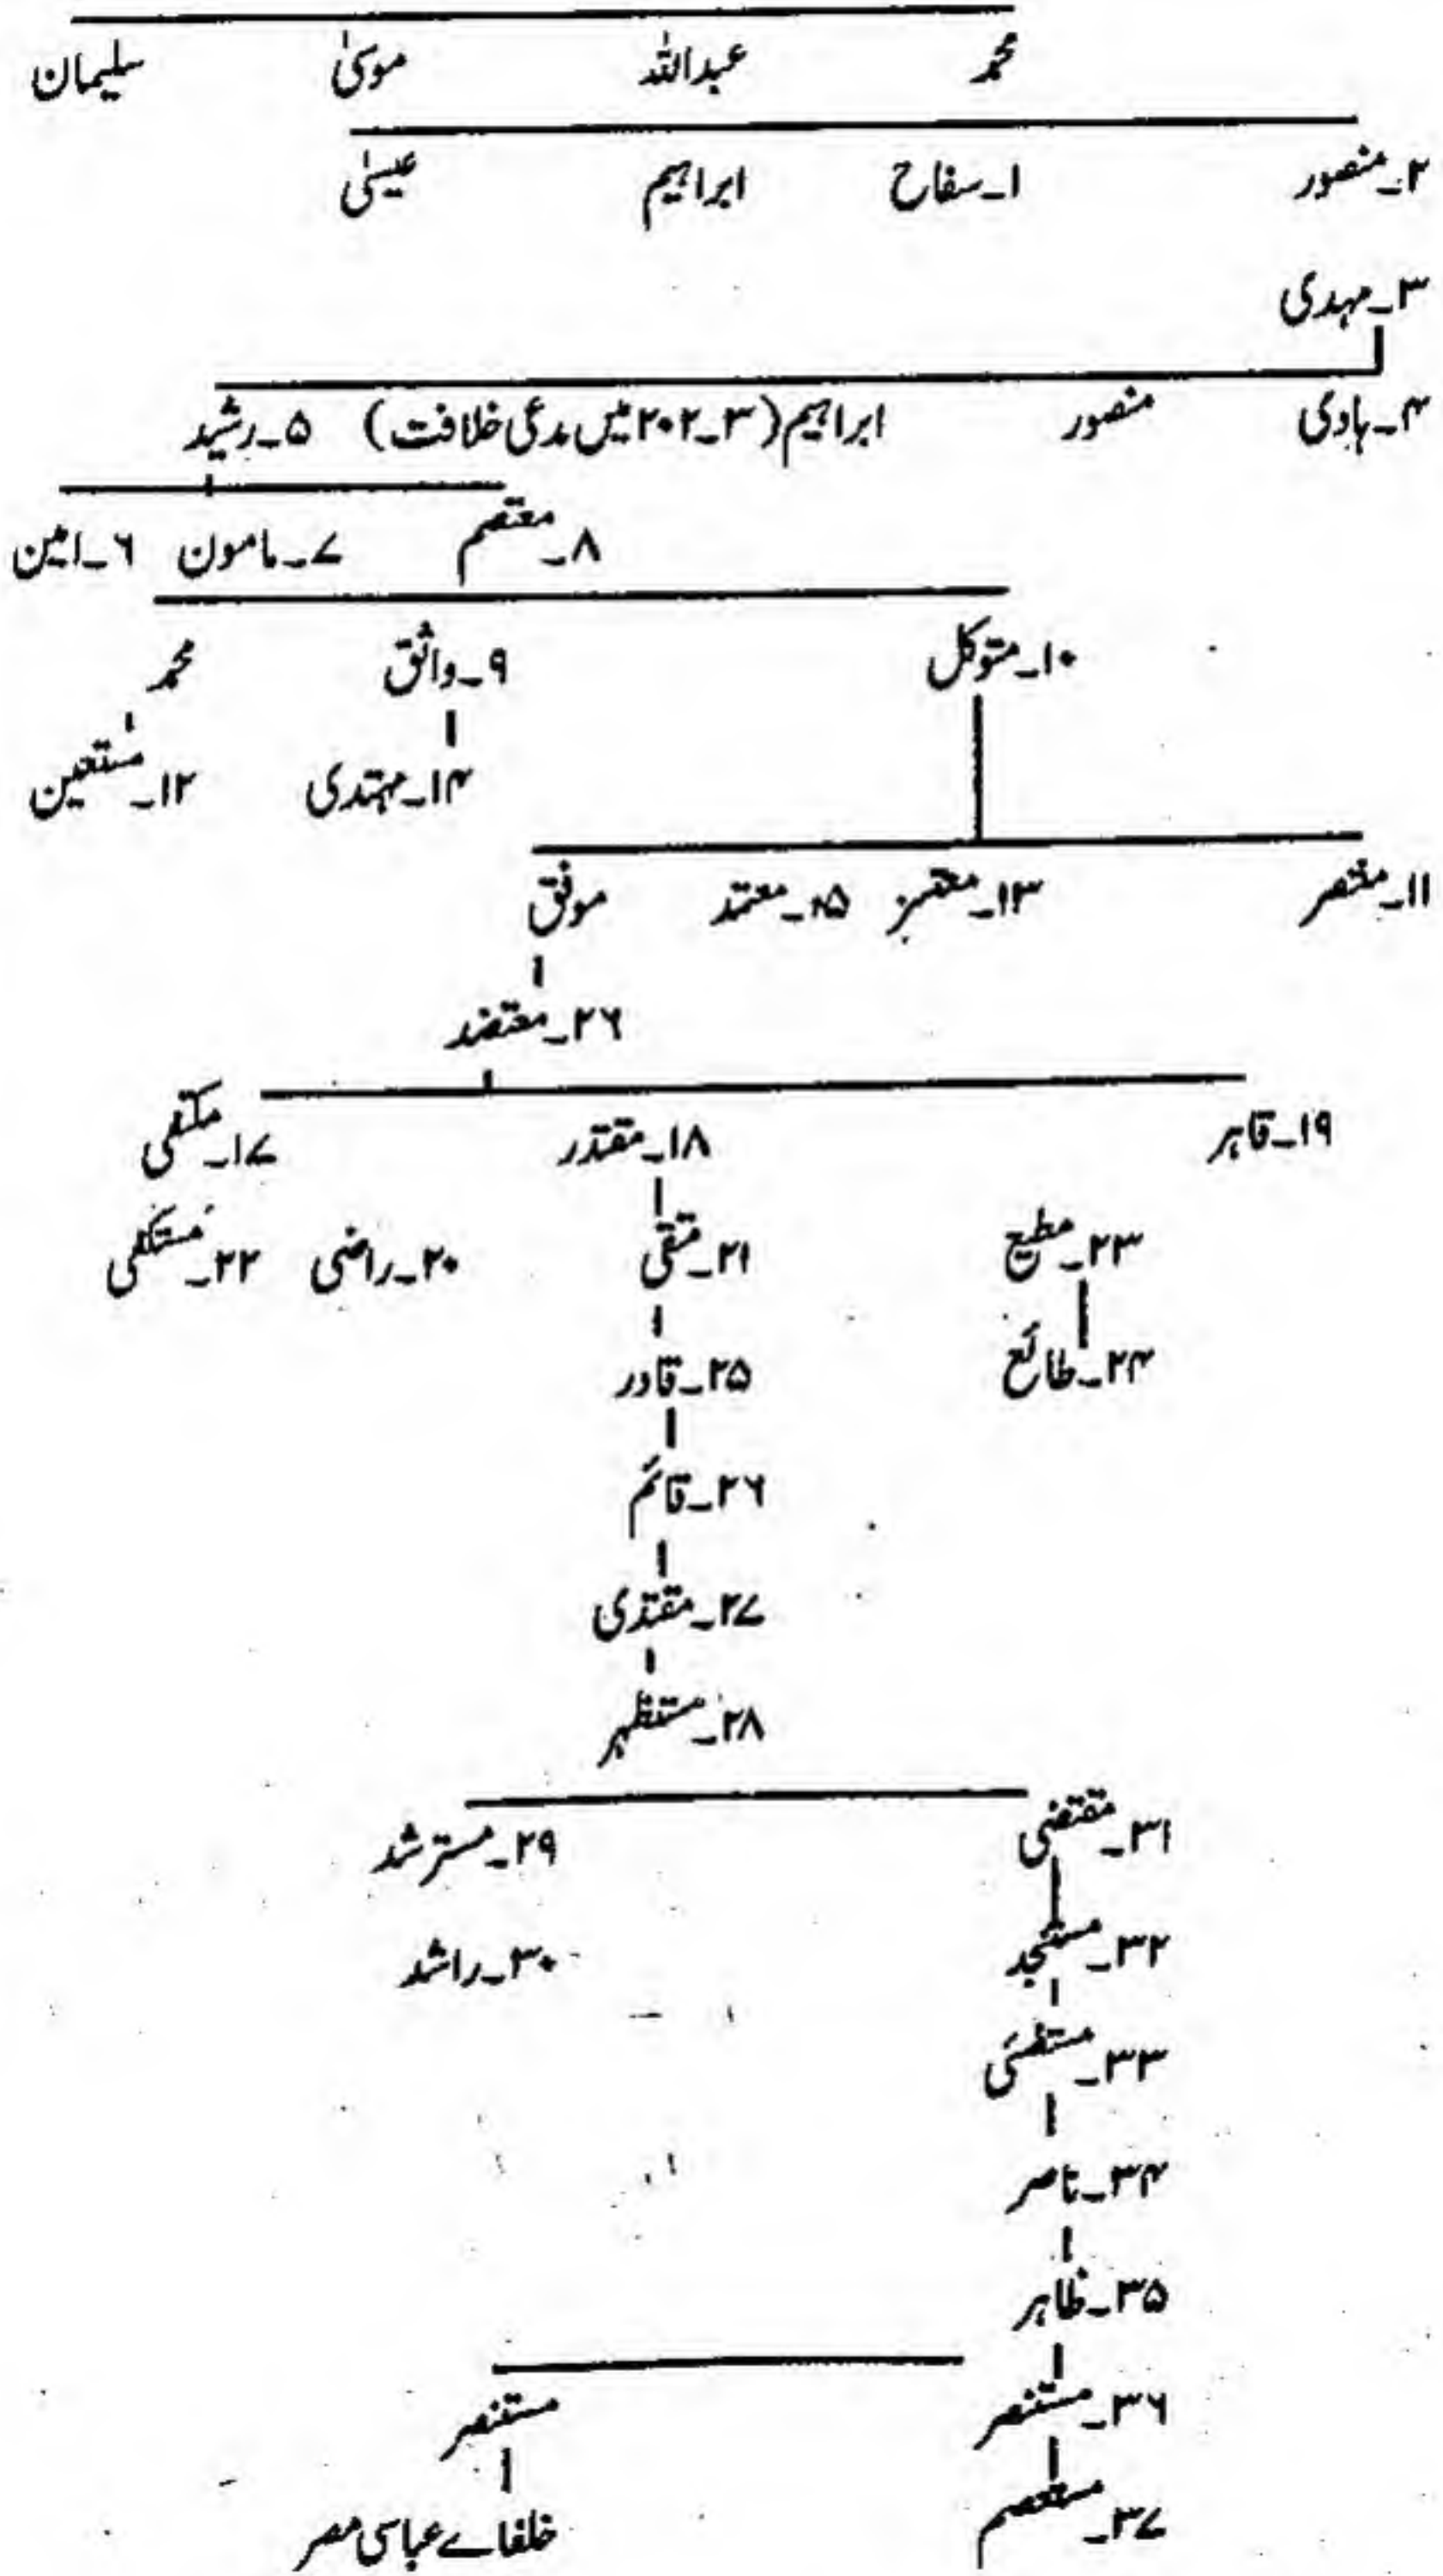 محمد عبداللہ موسیٰ سلیمان
۲۔منصور ۱۔سفاح ابراہیم عیسیٰ
۳۔مہدی
۴۔ہادی منصور ابراہیم (۳۔۲۰۲ میں مدعی خلافت) ۵۔رشید
۸۔معتصم ۷۔مامون ۶۔امین
۱۰۔متوکل ۹۔واثق محمد
۱۴۔مہتدی ۱۲۔مستعین
۱۱۔منتصر ۱۳۔معتز ۱۵۔معتمد موفق
۲۶۔معتضد
۱۹۔قاہر ۱۸۔مقتدر ۱۷۔مکتفی
۲۳۔مطیع ۲۱۔متقی ۲۰۔راضی ۲۲۔مستکفی
۲۴۔طائع ۲۵۔قادر
۲۶۔قائم
۲۷۔مقتدی
۲۸۔مستظہر
۳۱۔مقتضی ۲۹۔مسترشد
۳۲۔مستنجد ۳۰۔راشد
۳۳۔مستضئی
۳۴۔ناصر
۳۵۔ظاہر
۳۶۔مستنصر مستنصر
۳۷۔مستعصم خلفاے عباسی مصر